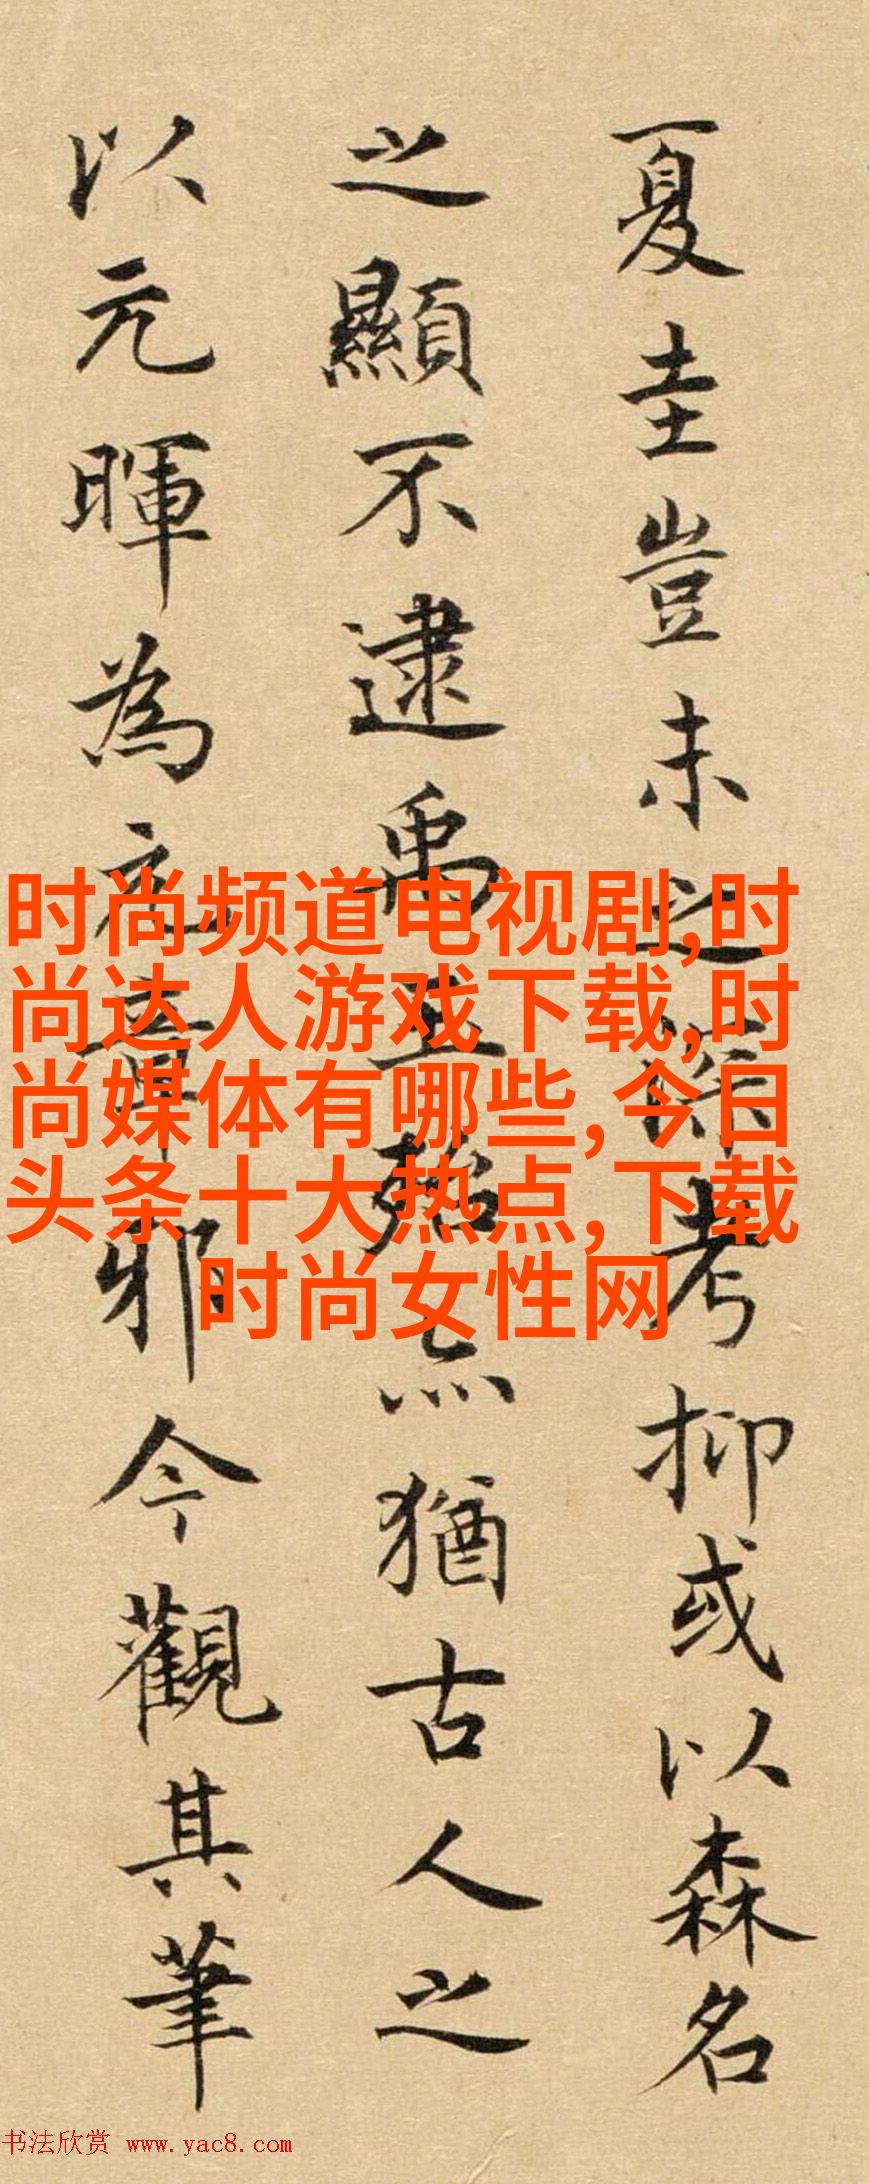 夏圭豈未之深考抑或以森名
之顯不逮禹玉亦猶古人之
以元暉為元章邪今觀其筆
时尚频道电视剧,时
尚达人游戏下载,时
尚媒体有哪些,今日
头条十大热点,下载
时尚女性网
书法欣赏 www.yac8.com